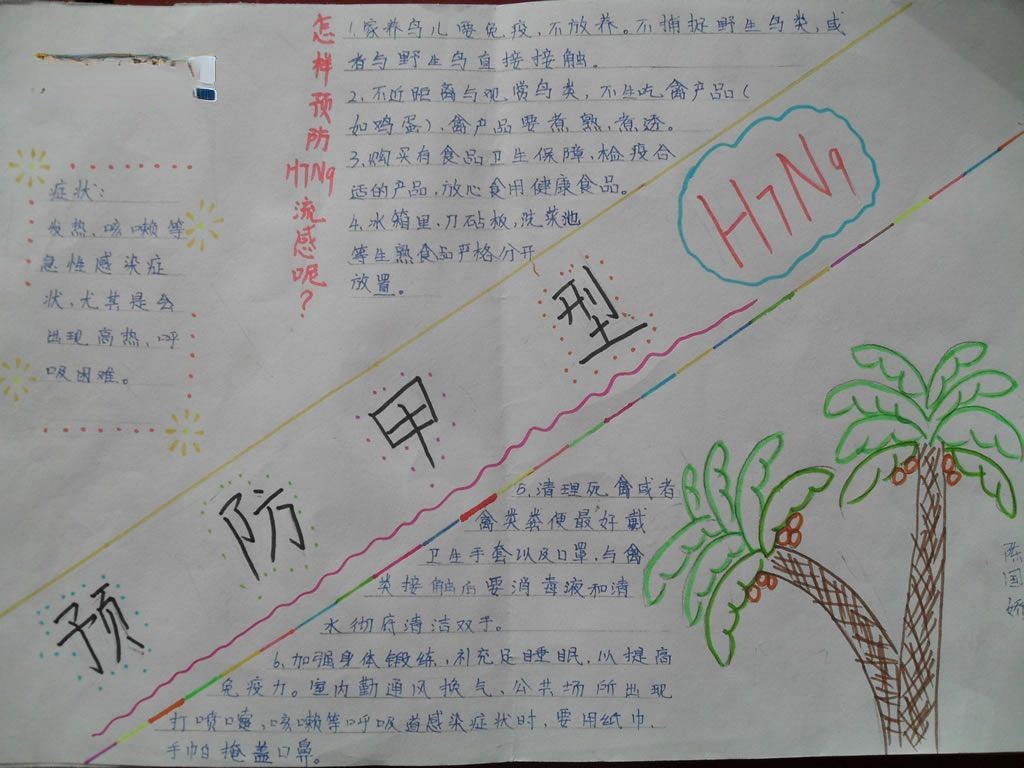 怎样预防H7N9流感呢?
1.家养鸟儿要免疫,不放养。不捕捉野生鸟类,或
者与野生鸟直接接触。
2.不近距离与观赏鸟类,不生吃禽产品(
如鸡蛋),禽产品要煮熟,煮透。
3.购买有食品卫生保障,检疫合
适的产品,放心食用健康食品。
4.冰箱里、刀砧板,洗菜池
等生熟食品严格分开
放置。
症状:
发热、咳嗽等
急性感染症
状,尤其是会
出现高热、呼
吸困难。
H7N9
预防甲型
5.清理死禽或者
禽类粪便最好戴
卫生手套以及口罩,与禽
类接触后要消毒液和清
水彻底清洁双手。
6.加强身体锻练,补充足睡眠,以提高
免疫力。室内勤通风换气、公共场所出现
打喷嚏、咳嗽等呼吸道感染症状时,要用纸巾、
手帕掩盖口鼻。
陈国娇